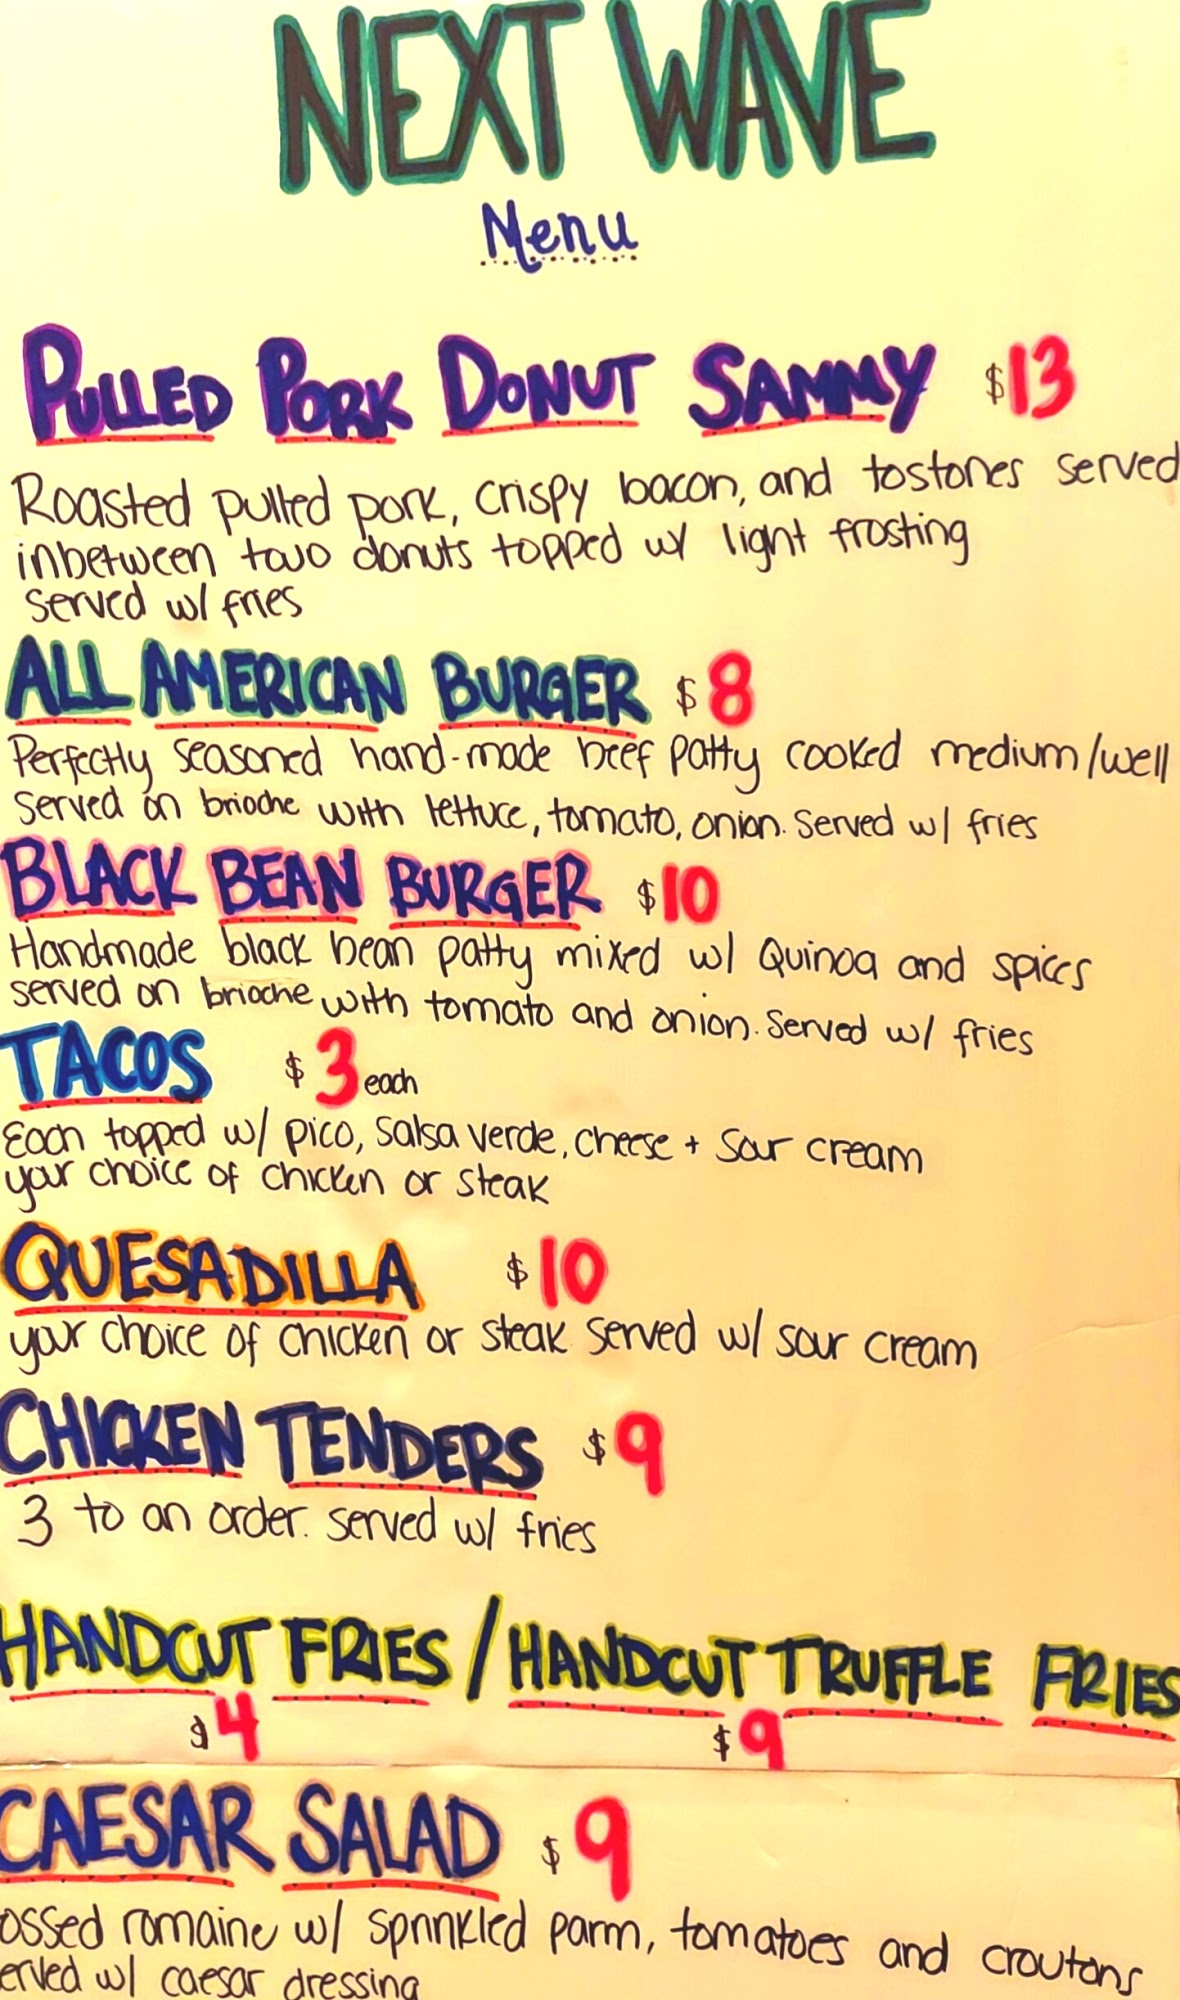 NEXT WAVE
Menu
PULLED PORK DONUT SAMMY $13
Roasted pulled pork, crispy bacon, and tostones served
inbetween two donuts topped w/ light frosting
Served w/ fries
ALL AMERICAN BURGER $8
Perfectly seasoned hand-made beef patty cooked medium/well
Served on brioche with lettuce, tomato, onion. Served w/ fries
BLACK BEAN BURGER $10
Handmade black bean patty mixed w/ Quinoa and spices
served on brioche with tomato and onion. Served w/ fries
TACOS $3 each
Each topped w/ pico, salsa verde, cheese + sour cream
your choice of chicken or steak
QUESADILLA $10
your choice of chicken or steak served w/ sour cream
CHICKEN TENDERS $9
3 to an order. served w/ fries
HANDCUT FRIES / HANDCUT TRUFFLE FRIES
$4 $9
CAESAR SALAD $9
ossed romaine w/ sprinkled parm, tomatoes and croutons
erved w/ caesar dressing